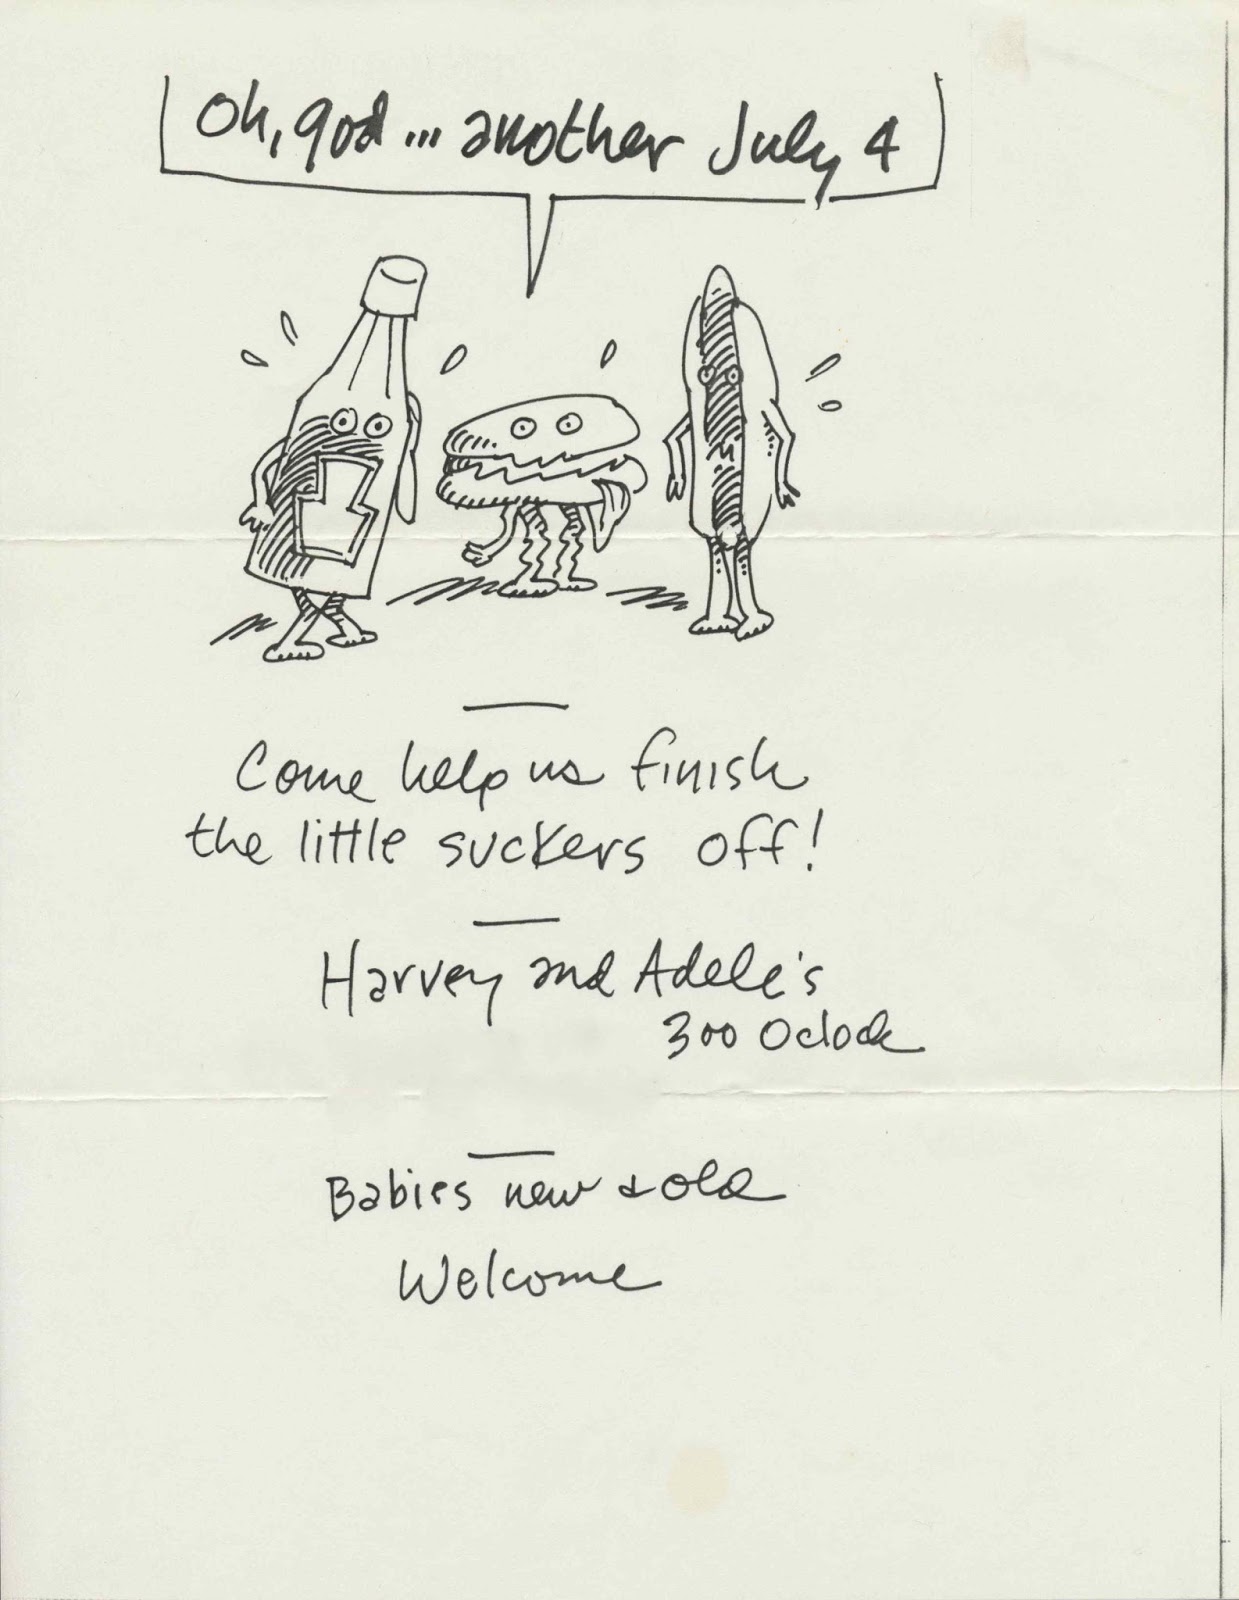 Oh, god... another July 4
Come help us finish
the little suckers off!
Harvey and Adele's
300 Oclock
Babies new & old
Welcome